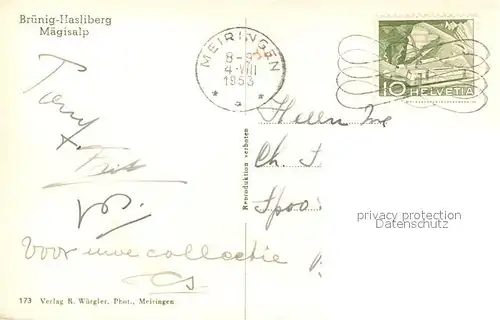 Brünig-Hasliberg
Mägisalp
MEIRINGEN
8-
4·VIII
1953
10 HELVETIA
Tony
Frits
Voor uwe collectie
Reproduktion verboten
Ch.
privacy protection
Datenschutz
173 Verlag K. Würgler, Phot., Meiringen